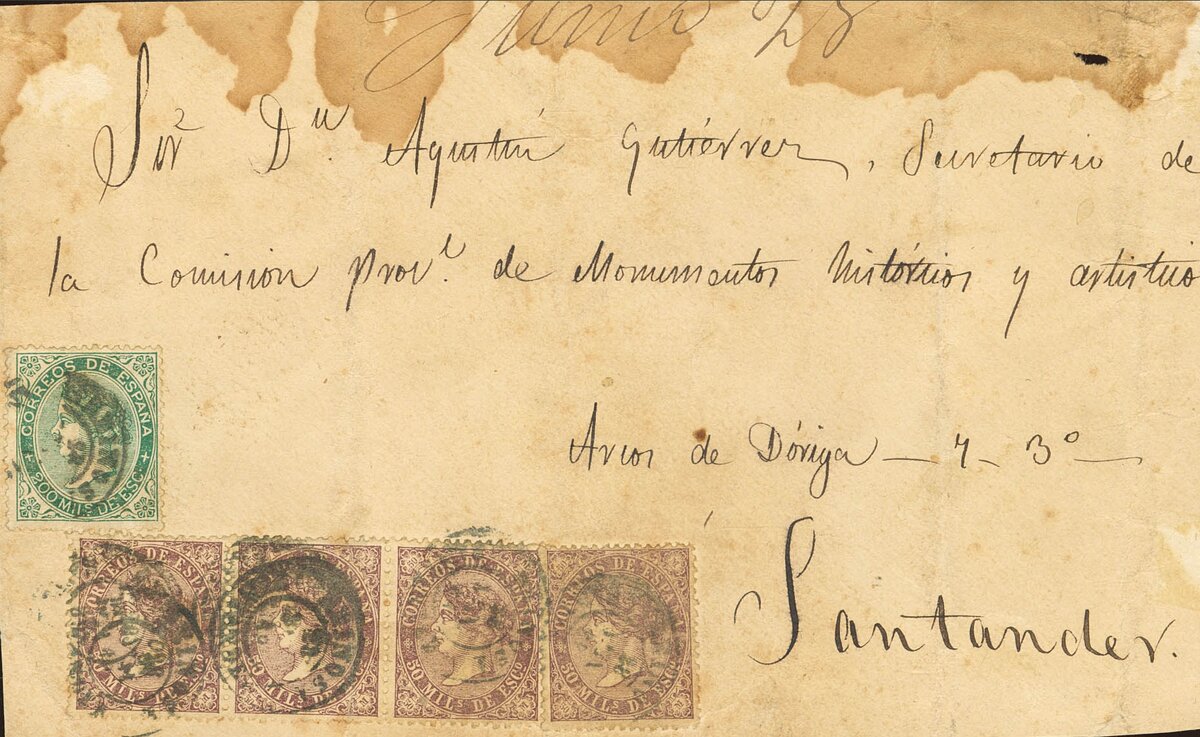 Junio 28
Sor D.n Agustín Gutiérrez, Secretario de
la Comision prov.l de Monumentos históricos y artistico
Arcos de Dóriga — 7 — 3º —
Santander.
CORREOS DE ESPAÑA
200 MILS DE ESCO
CORREOS DE ESPAÑA
50 MILS DE ESCO
CORREOS DE ESPAÑA
50 MILS DE ESCO
CORREOS DE ESPAÑA
50 MILS DE ESCO
CORREOS DE ESPAÑA
50 MILS DE ESCO